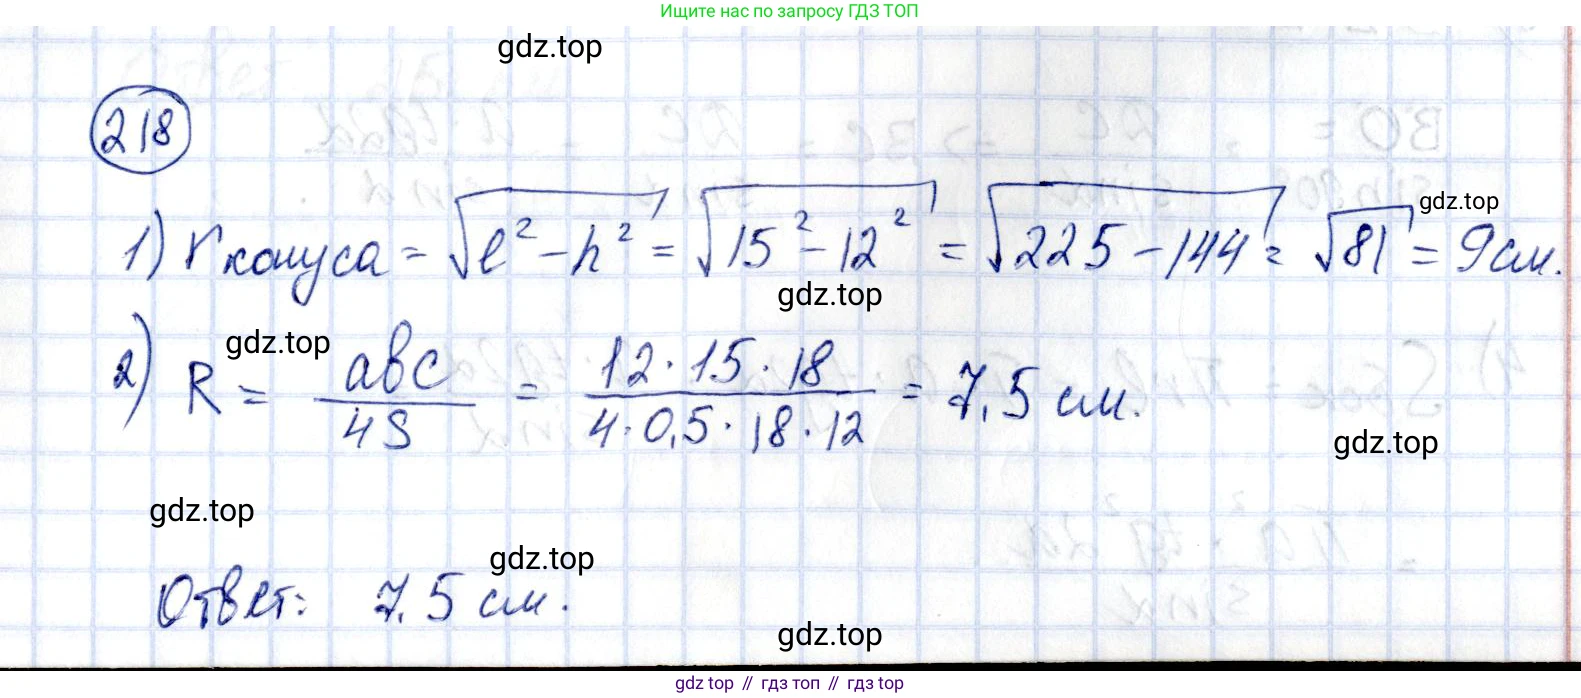 Ищите нас по запросу ГДЗ ТОП
gdz.top
218
gdz.top
1) r конуса = √(l² - h²) = √(15² - 12²) = √(225 - 144) = √81 = 9 см.
gdz.top
gdz.top
2) R = abc / 4S = 12 · 15 · 18 / 4 · 0,5 · 18 · 12 = 7,5 см.
gdz.top
gdz.top
gdz.top
Ответ: 7,5 см.
gdz.top
gdz top // гдз топ // гдз top